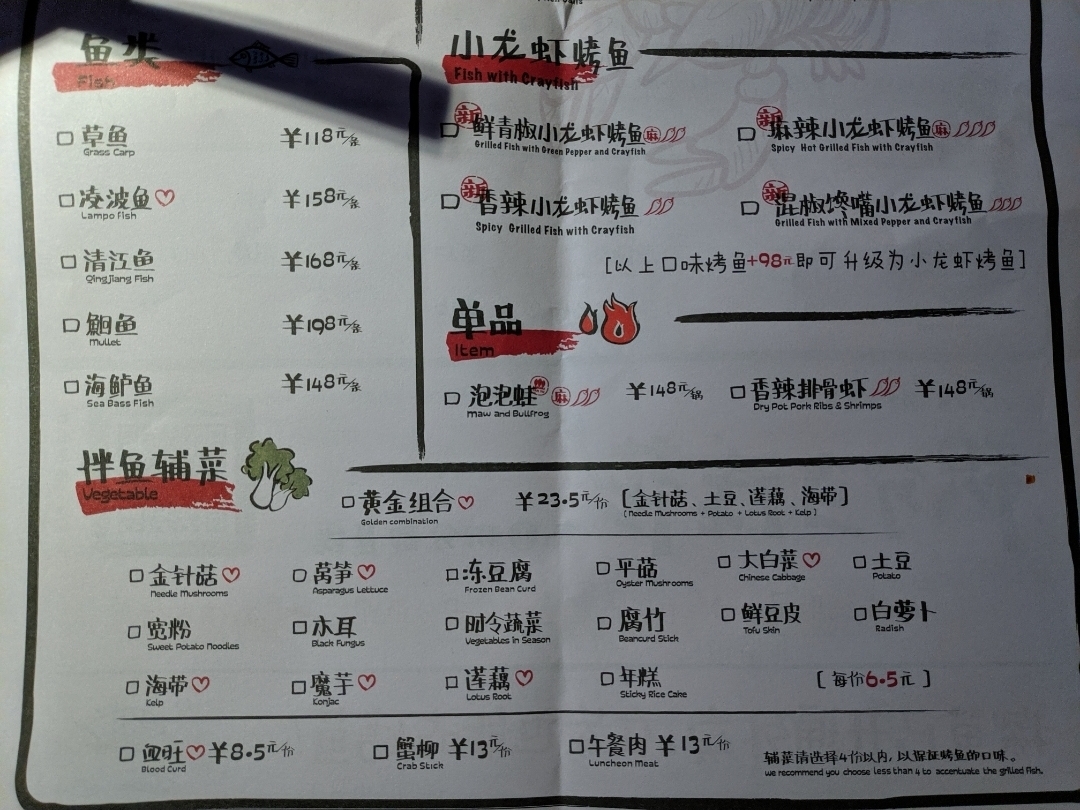 鱼类
Fish
草鱼 ¥118元/条
Grass Carp
凌波鱼 ¥158元/条
Lampo Fish
清江鱼 ¥168元/条
QingJiang Fish
鮰鱼 ¥198元/条
Mullet
海鲈鱼 ¥148元/条
Sea Bass Fish
小龙虾烤鱼
Fish with Crayfish
新 鲜青椒小龙虾烤鱼 麻
Grilled Fish with Green Pepper and Crayfish
新 麻辣小龙虾烤鱼 麻
Spicy Hot Grilled Fish with Crayfish
新 香辣小龙虾烤鱼
Spicy Grilled Fish with Crayfish
新 混椒馋嘴小龙虾烤鱼
Grilled Fish with Mixed Pepper and Crayfish
[以上口味烤鱼+98元即可升级为小龙虾烤鱼]
单品
Item
泡泡蛙 麻 ¥148元/锅
Maw and Bullfrog
香辣排骨虾 ¥148元/锅
Dry Pot Pork Ribs & Shrimps
拌鱼辅菜
Vegetable
黄金组合 ¥23.5元/份 [金针菇、土豆、莲藕、海带]
Golden combination (Needle Mushrooms + Potato + Lotus Root + Kelp)
金针菇 莴笋 冻豆腐 平菇 大白菜 土豆
Needle Mushrooms Asparagus Lettuce Frozen Bean Curd Oyster Mushrooms Chinese Cabbage Potato
宽粉 木耳 时令蔬菜 腐竹 鲜豆皮 白萝卜
Sweet Potato Noodles Black Fungus Vegetables in Season Beancurd Stick Tofu Skin Radish
海带 魔芋 莲藕 年糕 [每份6.5元]
Kelp Konjac Lotus Root Sticky Rice Cake
血旺 ¥8.5元/份 蟹柳 ¥13元/份 午餐肉 ¥13元/份
Blood Curd Crab Stick Luncheon Meat
辅菜请选择4份以内,以保证烤鱼的口味。
we recommend you choose less than 4 to accentuate the grilled fish.